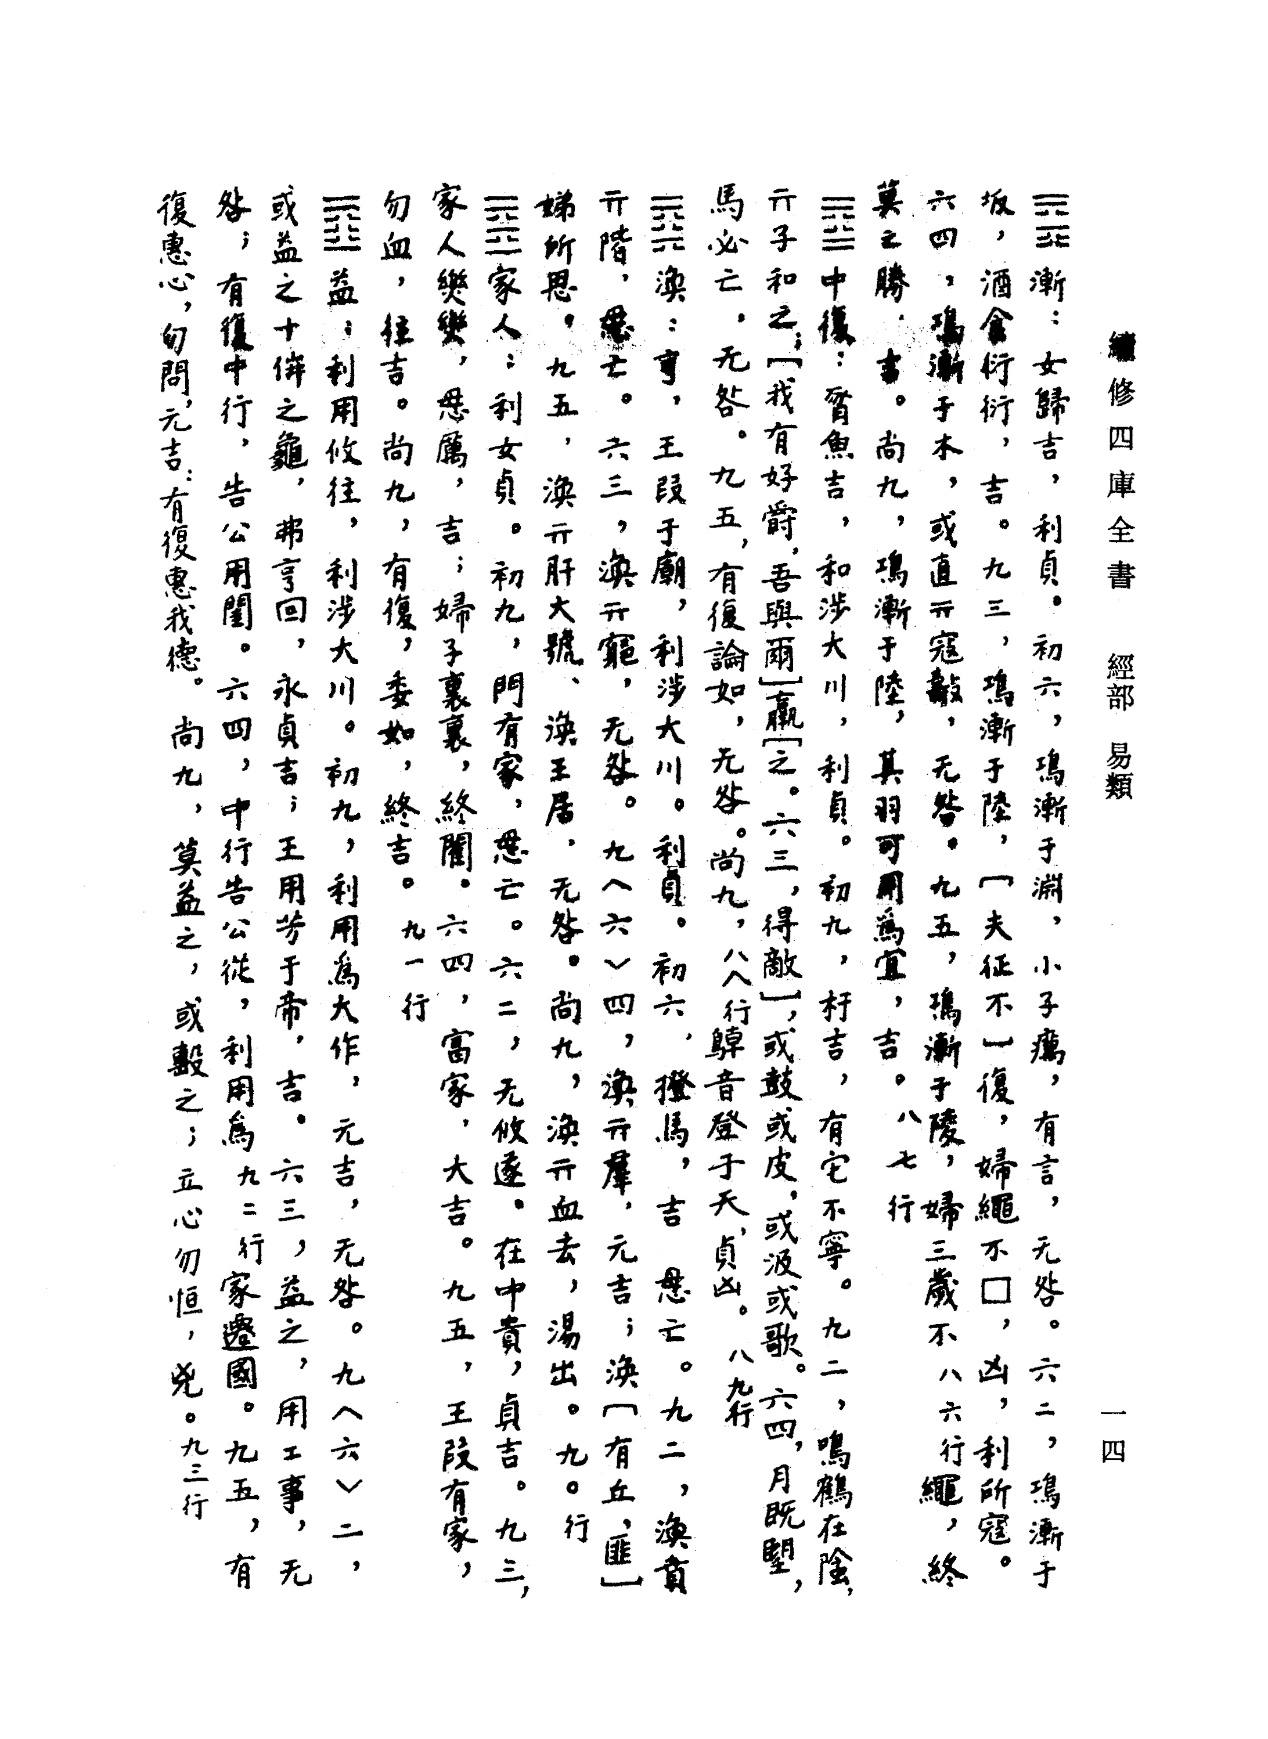 續修四庫全書　經部　易類
一四
漸：女歸吉，利貞。初六，鳿漸于淵，小子癘，有言，无咎。六二，鳿漸于
坂，酒食衍衍，吉。九三，鳿漸于陸，〔夫征不〕復，婦繩不□，凶，利所寇。
六四，鳿漸于木，或直亓寇，无咎。九五，鳿漸于陵，婦三歲不八六行繩，終
莫之勝，吉。尚九，鳿漸于陸，其羽可用爲宜，吉。八七行
中復：豚魚吉，和涉大川，利貞。初九，杅吉，有它不寧。九二，鳴鶴在陰，
亓子和之；〔我有好爵，吾與爾〕羸〔之。六三，得敵〕，或鼓或皮，或汲或歌。六四，月既望，
馬必亡，无咎。九五，有復論如，无咎。尚九，八八行鶾音登于天，貞凶。八九行
渙：亨，王叚于廟，利涉大川。利貞。初六，撜馬，吉　悬亡。九二，渙賁
亓階，悬亡。六三，渙亓竆，无咎。九〈六〉四，渙亓羣，元吉；渙〔有丘，匪〕
娣所思。九五，渙亓肝大號、渙王居，无咎。尚九，渙亓血去，湯出。九〇行
家人：利女貞。初九，門有家，悬亡。六二，无攸遂。在中貴，貞吉。九三，
家人樂樂，悬厲，吉；婦子裏裏，終閵。六四，富家，大吉。九五，王叚有家，
勿血，往吉。尚九，有復，委如，終吉。九一行
益：利用攸往，利涉大川。初九，利用爲大作，元吉，无咎。九〈六〉二，
或益之十倗之龜，弗亨回，永貞吉；王用芳于帝，吉。六三，益之，用工事，无
咎；有復中行，告公用閨。六四，中行告公從，利用爲九二行家遷國。九五，有
復惠心，勿問，元吉；有復惠我德。尚九，莫益之，或毄之；立心勿恒，兇。九三行